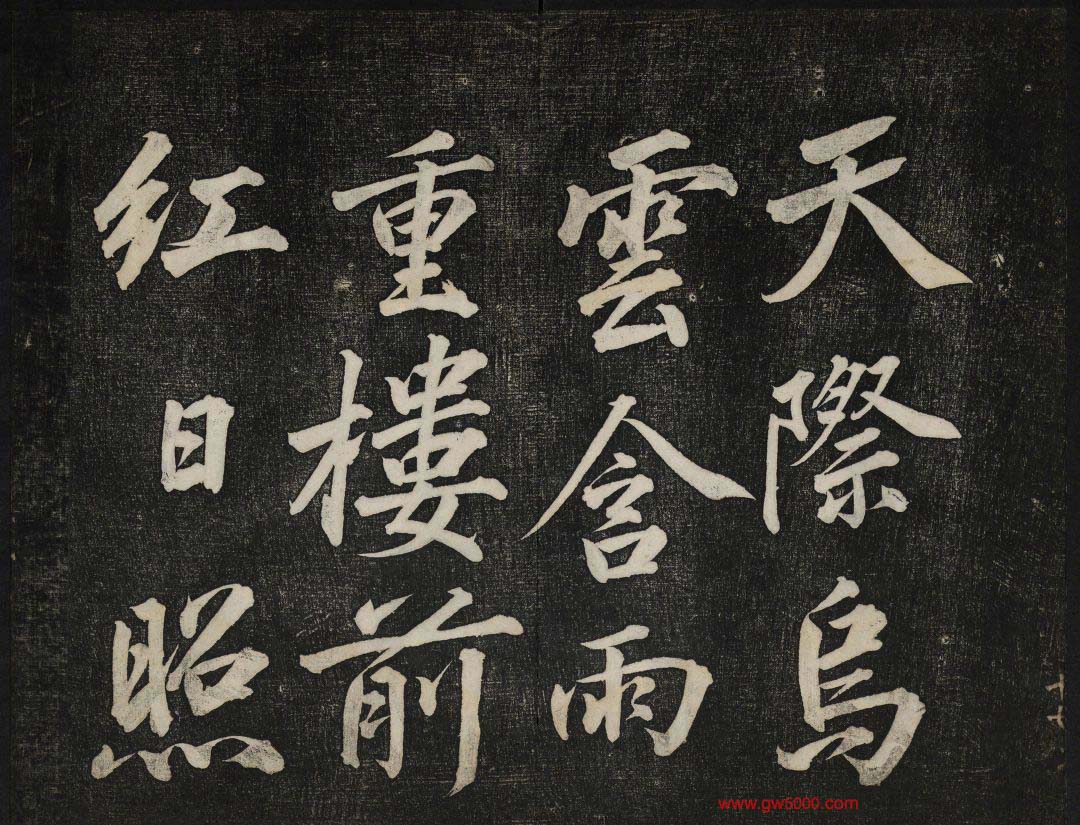 天際烏
雲含雨
重樓前
紅日照
www.gw5000.com